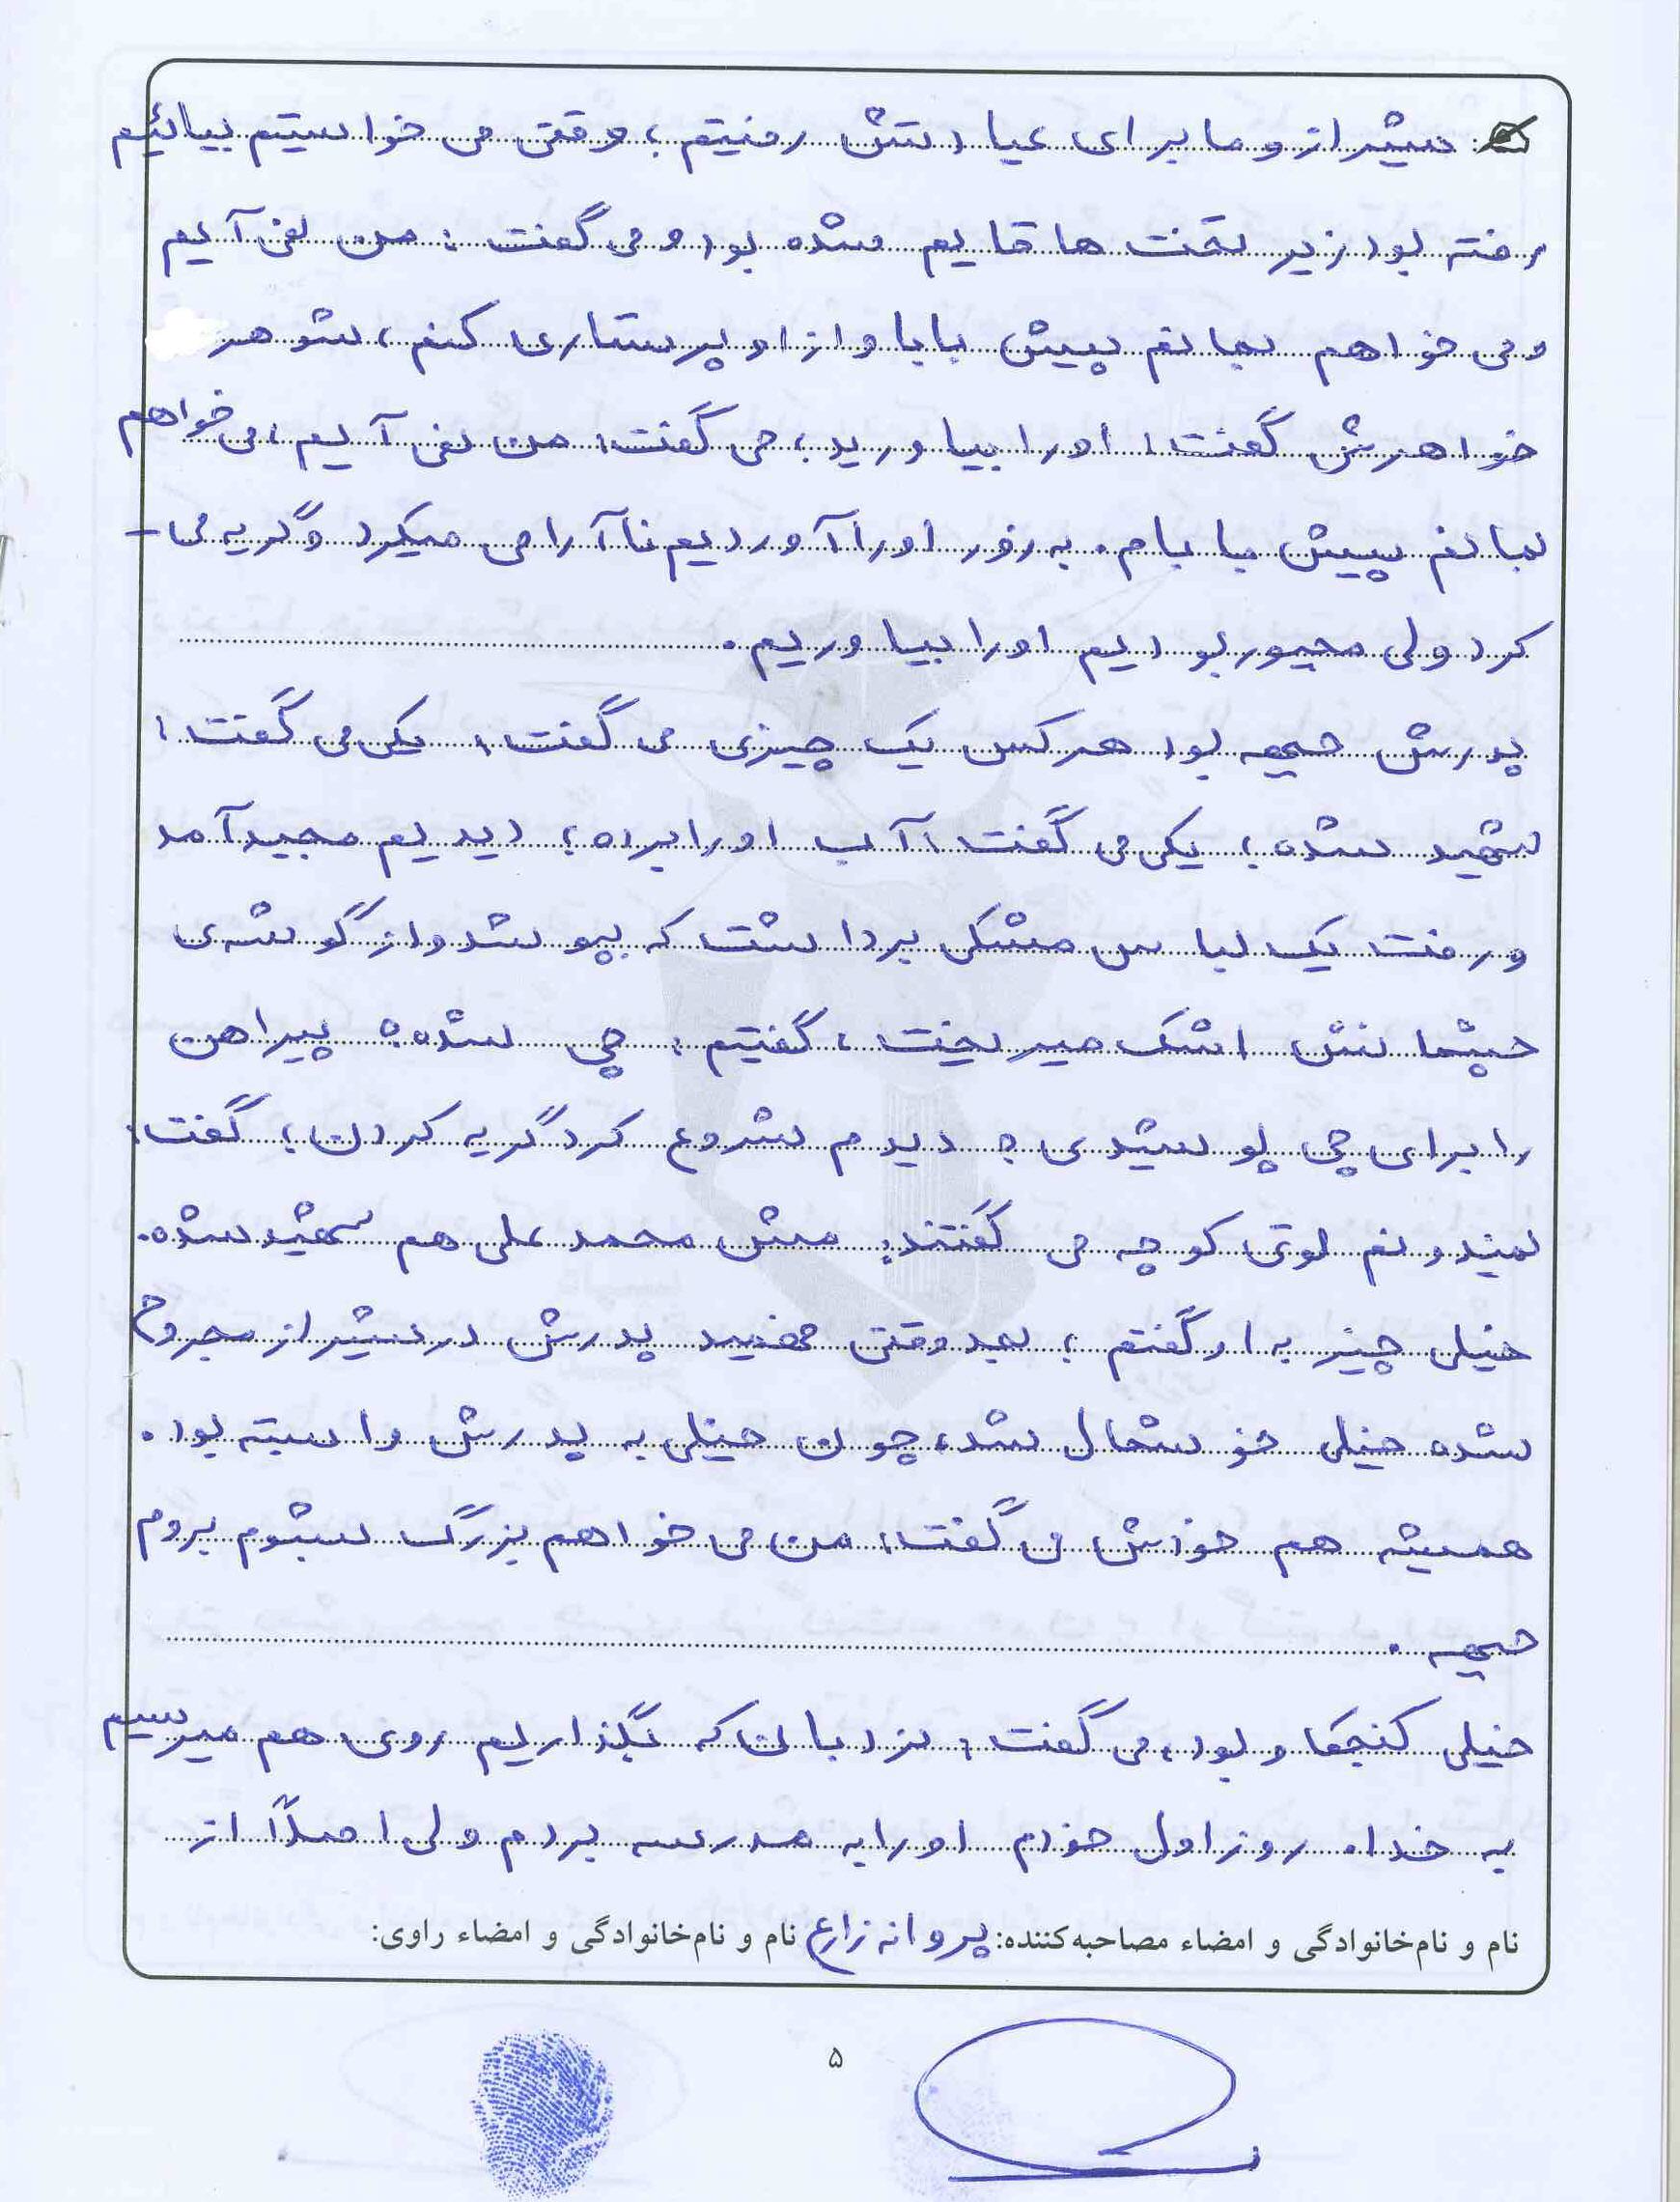 شیراز و ما برای عیادتش رفتیم؛ وقتی می خواستیم بیائیم
رفته بود زیر تخت ها قایم شده بود و می گفت: من نمی آیم
و می خواهم بمانم پیش بابا و از او پرستاری کنم، شوهر
خواهرش گفت: او را بیاورید؛ می گفت: من نمی آیم، می خواهم
بمانم پیش بابام. به زور او را آوردیم نا آرامی میکرد و گریه می-
کرد ولی مجبور بودیم او را بیاوریم.
پدرش جبهه بود هر کس یک چیزی می گفت، یکی می گفت:
شهید شده؛ یکی می گفت: آب او را برده؛ دیدیم مجید آمد
و رفت یک لباس مشکی برداشت که بپوشد و از گوشه ی
چشمانش اشک میریخت، گفتیم: چی شده؟ پیراهن
را برای چی پوشیدی؟ دیدم شروع کرد گریه کردن؛ گفت:
نمیدونم توی کوچه می گفتند: مش محمد علی هم شهید شده.
خیلی چیز به او گفتم؛ بعد وقتی فهمید پدرش در شیراز مجروح
شده خیلی خوشحال شد، چون خیلی به پدرش وابسته بود.
همیشه هم خودش می گفت: من می خواهم بزرگ بشوم بروم
جبهه.
خیلی کنجکاو بود، می گفت: نردبان که بگذاریم روی هم میرسیم
به خدا. روز اول خودم او را به مدرسه بردم ولی اصلاً از
نام و نام‌خانوادگی و امضاء مصاحبه‌کننده: پروانه زارع نام و نام‌خانوادگی و امضاء راوی:
۵